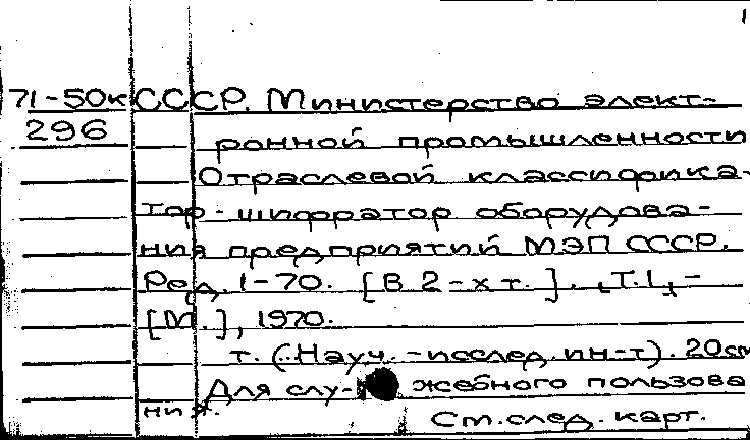 1
71-50к СССР. Министерство элект-
296 ронной промышленности
Отраслевой классифика-
тор-шифратор оборудова-
ния предприятий МЭП СССР.
Ред. 1-70. [В 2-х т.]. Т.1, -
[М.], 1970.
т. (Науч.-исслед. ин-т). 20см
Для слу- жебного пользова
ния.
См. след. карт.